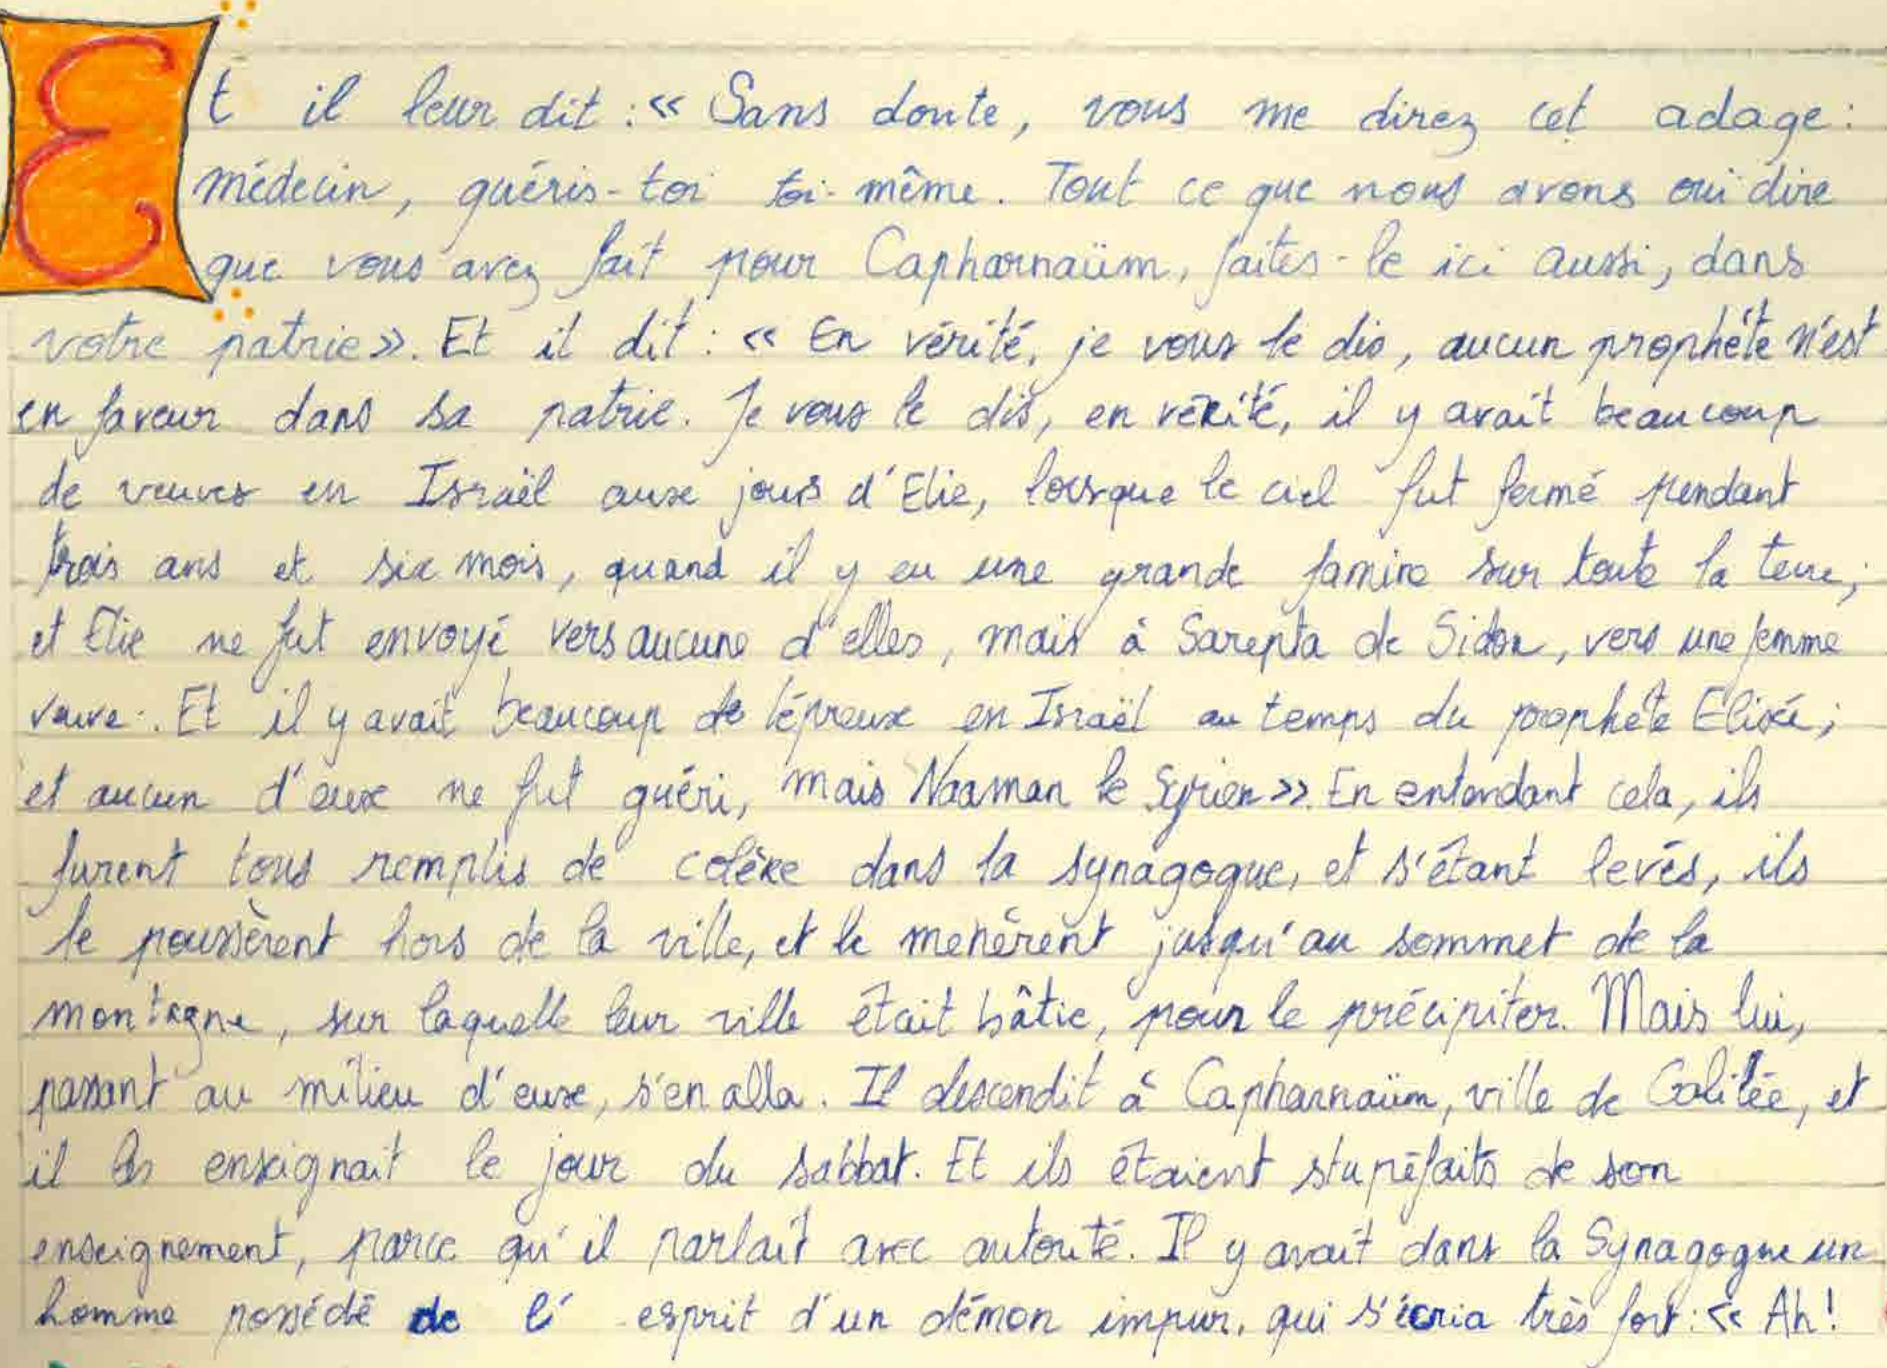 Et il leur dit : « Sans doute, vous me direz cet adage :
médecin, guéris-toi toi-même. Tout ce que nous avons ouï dire
que vous avez fait pour Capharnaüm, faites-le ici aussi, dans
votre patrie ». Et il dit : « En vérité, je vous le dis, aucun prophète n'est
en faveur dans sa patrie. Je vous le dis, en vérité, il y avait beaucoup
de veuves en Israël aux jours d'Elie, lorsque le ciel fut fermé pendant
trois ans et six mois, quand il y eu une grande famine sur toute la terre ;
et Elie ne fut envoyé vers aucune d'elles, mais à Sarepta de Sidon, vers une femme
veuve. Et il y avait beaucoup de lépreux en Israël au temps du prophète Elisée ;
et aucun d'eux ne fut guéri, mais Naaman le Syrien ». En entendant cela, ils
furent tous remplis de colère dans la synagogue, et s'étant levés, ils
le poussèrent hors de la ville, et le menèrent jusqu'au sommet de la
montagne, sur laquelle leur ville était bâtie, pour le précipiter. Mais lui,
passant au milieu d'eux, s'en alla. Il descendit à Capharnaüm, ville de Galilée, et
il les enseignait le jour du sabbat. Et ils étaient stupéfaits de son
enseignement, parce qu'il parlait avec autorité. Il y avait dans la Synagogue un
homme possédé de l'esprit d'un démon impur, qui s'écria très fort : « Ah !